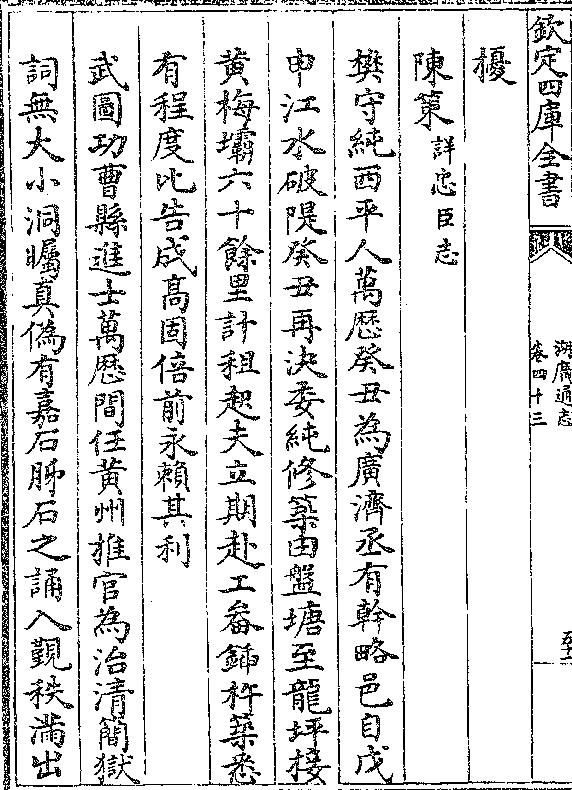 欽定四庫全書
湖廣通志
卷四十三
擾
陳策詳忠臣志
樊守純西平人萬歷癸丑為廣濟丞有幹略邑自戊
申江水破隄癸丑再決委純修築由盤塘至龍坪接
黃梅壩六十餘里計租起夫立期赴工畚鍤杵築悉
有程度比告成高固倍前永賴其利
武圖功曹縣進士萬歷間任黃州推官為治清簡獄
詞無大小洞矚真偽有嘉石肺石之誦入覲秩滿出